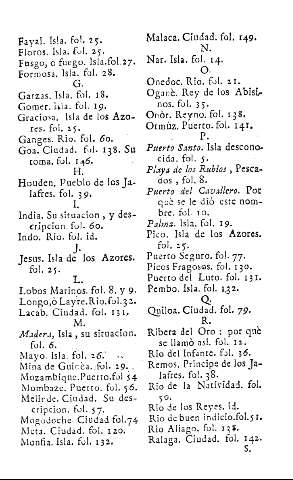 Fayal. Isla. fol. 25.
Floros. Isla. fol. 25.
Fusgo, ò fuego. Isla. fol. 27.
Formosa. Isla. fol. 28.
G.
Garzas. Isla. fol. 18.
Gomer. Isla. fol. 19.
Graciosa. Isla de los Azo-
res. fol. 25.
Ganges. Rio. fol. 60.
Goa. Ciudad. fol. 138. Su
toma. fol. 146.
H.
Houden. Pueblo de los Ja-
lasres. fol. 39.
I.
India. Su situacion, y des-
cripcion. fol. 60.
Indo. Rio. fol. id.
J.
Jesus. Isla de los Azores.
fol. 25.
L.
Lobos Marinos. fol. 8. y 9.
Longo, ò Layre. Rio. fol. 32.
Lacab. Ciudad. fol. 131.
M.
Madera, Isla, su situacion.
fol. 6.
Mayo. Isla. fol. 26.
Mina de Guinèa. fol. 29.
Mozambique. Puerto. fol 54
Mombaze. Puerto. fol. 56.
Melinde. Ciudad. Su des-
cripcion. fol. 57.
Mogodoche Ciudad fol. 74
Meta. Ciudad. fol. 120.
Monfia. Isla. fol. 132.
Malaca. Ciudad. fol. 149.
N.
Nar. Isla. fol. 14.
O.
Onedoc. Rio. fol. 21.
Ogarè. Rey de los Abisi-
nos. fol. 35.
Onòr. Reyno. fol. 138.
Ormùz. Puerto. fol. 141.
P.
Puerto Santo. Isla descono-
cida. fol. 5.
Playa de los Rubios, Pesca-
dos, fol. 8.
Puerto del Cavallero. Por
què se le diò este nom-
bre. fol. 10.
Palma. Isla. fol. 19.
Pico. Isla de los Azores.
fol. 25.
Puerto Seguro. fol. 77.
Picos Fragosos. fol. 130.
Puerto del Luto. fol. 131.
Pembo. Isla. fol. 132.
Q.
Quiloa. Ciudad. fol. 79.
R.
Ribera del Oro: por què
se llamò asi. fol. 12.
Rio del Infante. fol. 36.
Remos. Principe de los Ja-
lasres. fol. 38.
Rio de la Natividad. fol.
50.
Rio de los Reyes. id.
Rio de buen indicio. fol. 51.
Rio Aliago. fol. 138.
Ralaga. Ciudad. fol. 142.
S.